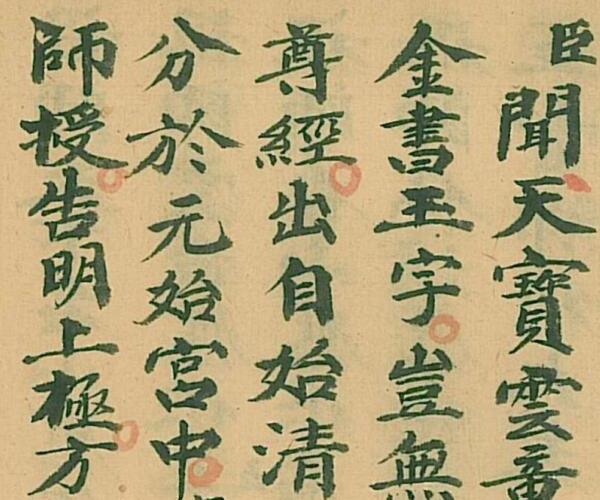 臣聞天寶雲
金書玉字豈無
尊經出自始清
分於元始宮中
師授告明上極方